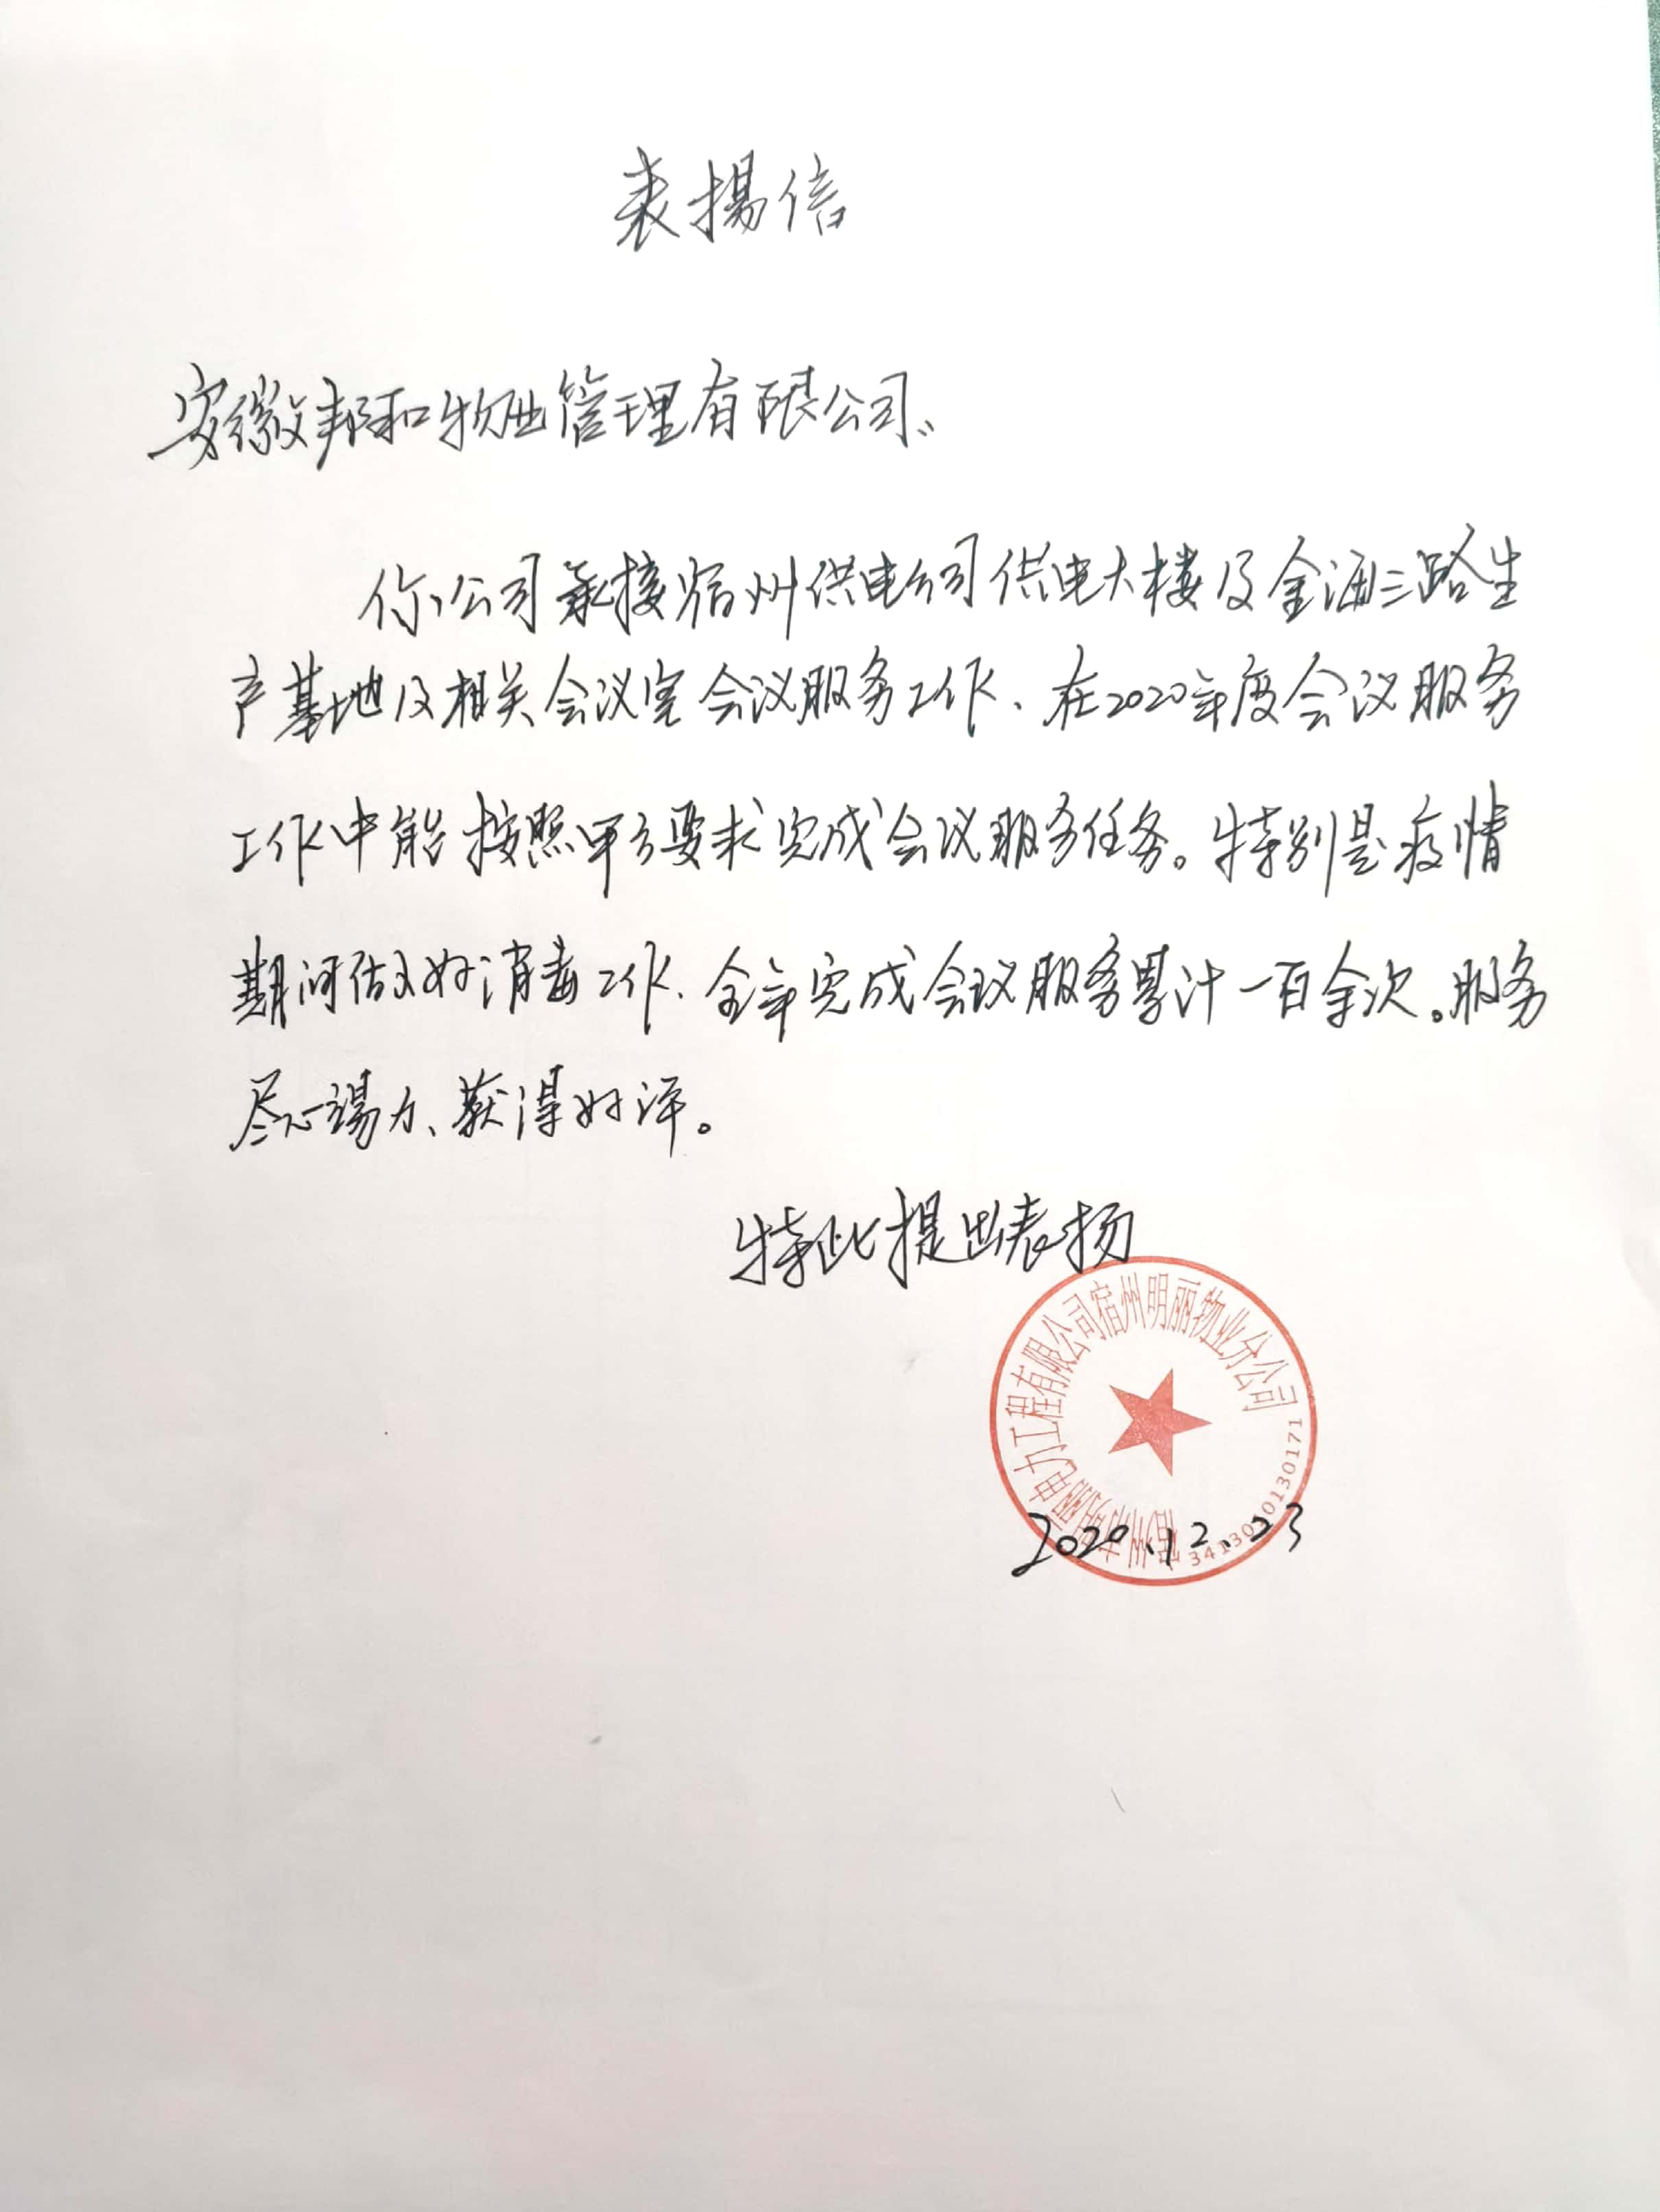 表揚信
安徽邦和物业管理有限公司:
你公司承接宿州供电公司供电大楼及金海三路生
产基地及相关会议室会议服务工作、在2020年度会议服务
工作中能按照甲方要求完成会议服务任务。特别是疫情
期间做好消毒工作、全年完成会议服务累计一百余次。服务
尽心竭力、获得好评。
特此提出表扬
宿州市明丽电力工程有限公司宿州明丽物业分公司
2020.12.23